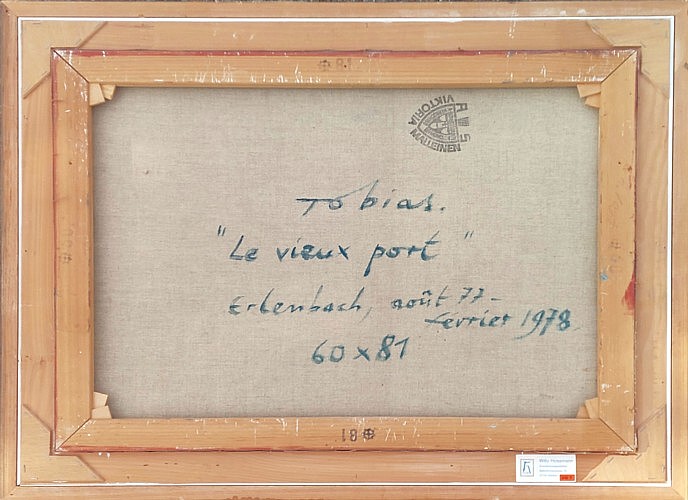 81
VIKTORIA
MALLEINEN
Tobias.
"Le vieux port"
Erlenbach, août 77-
février 1978
60 x 81
81